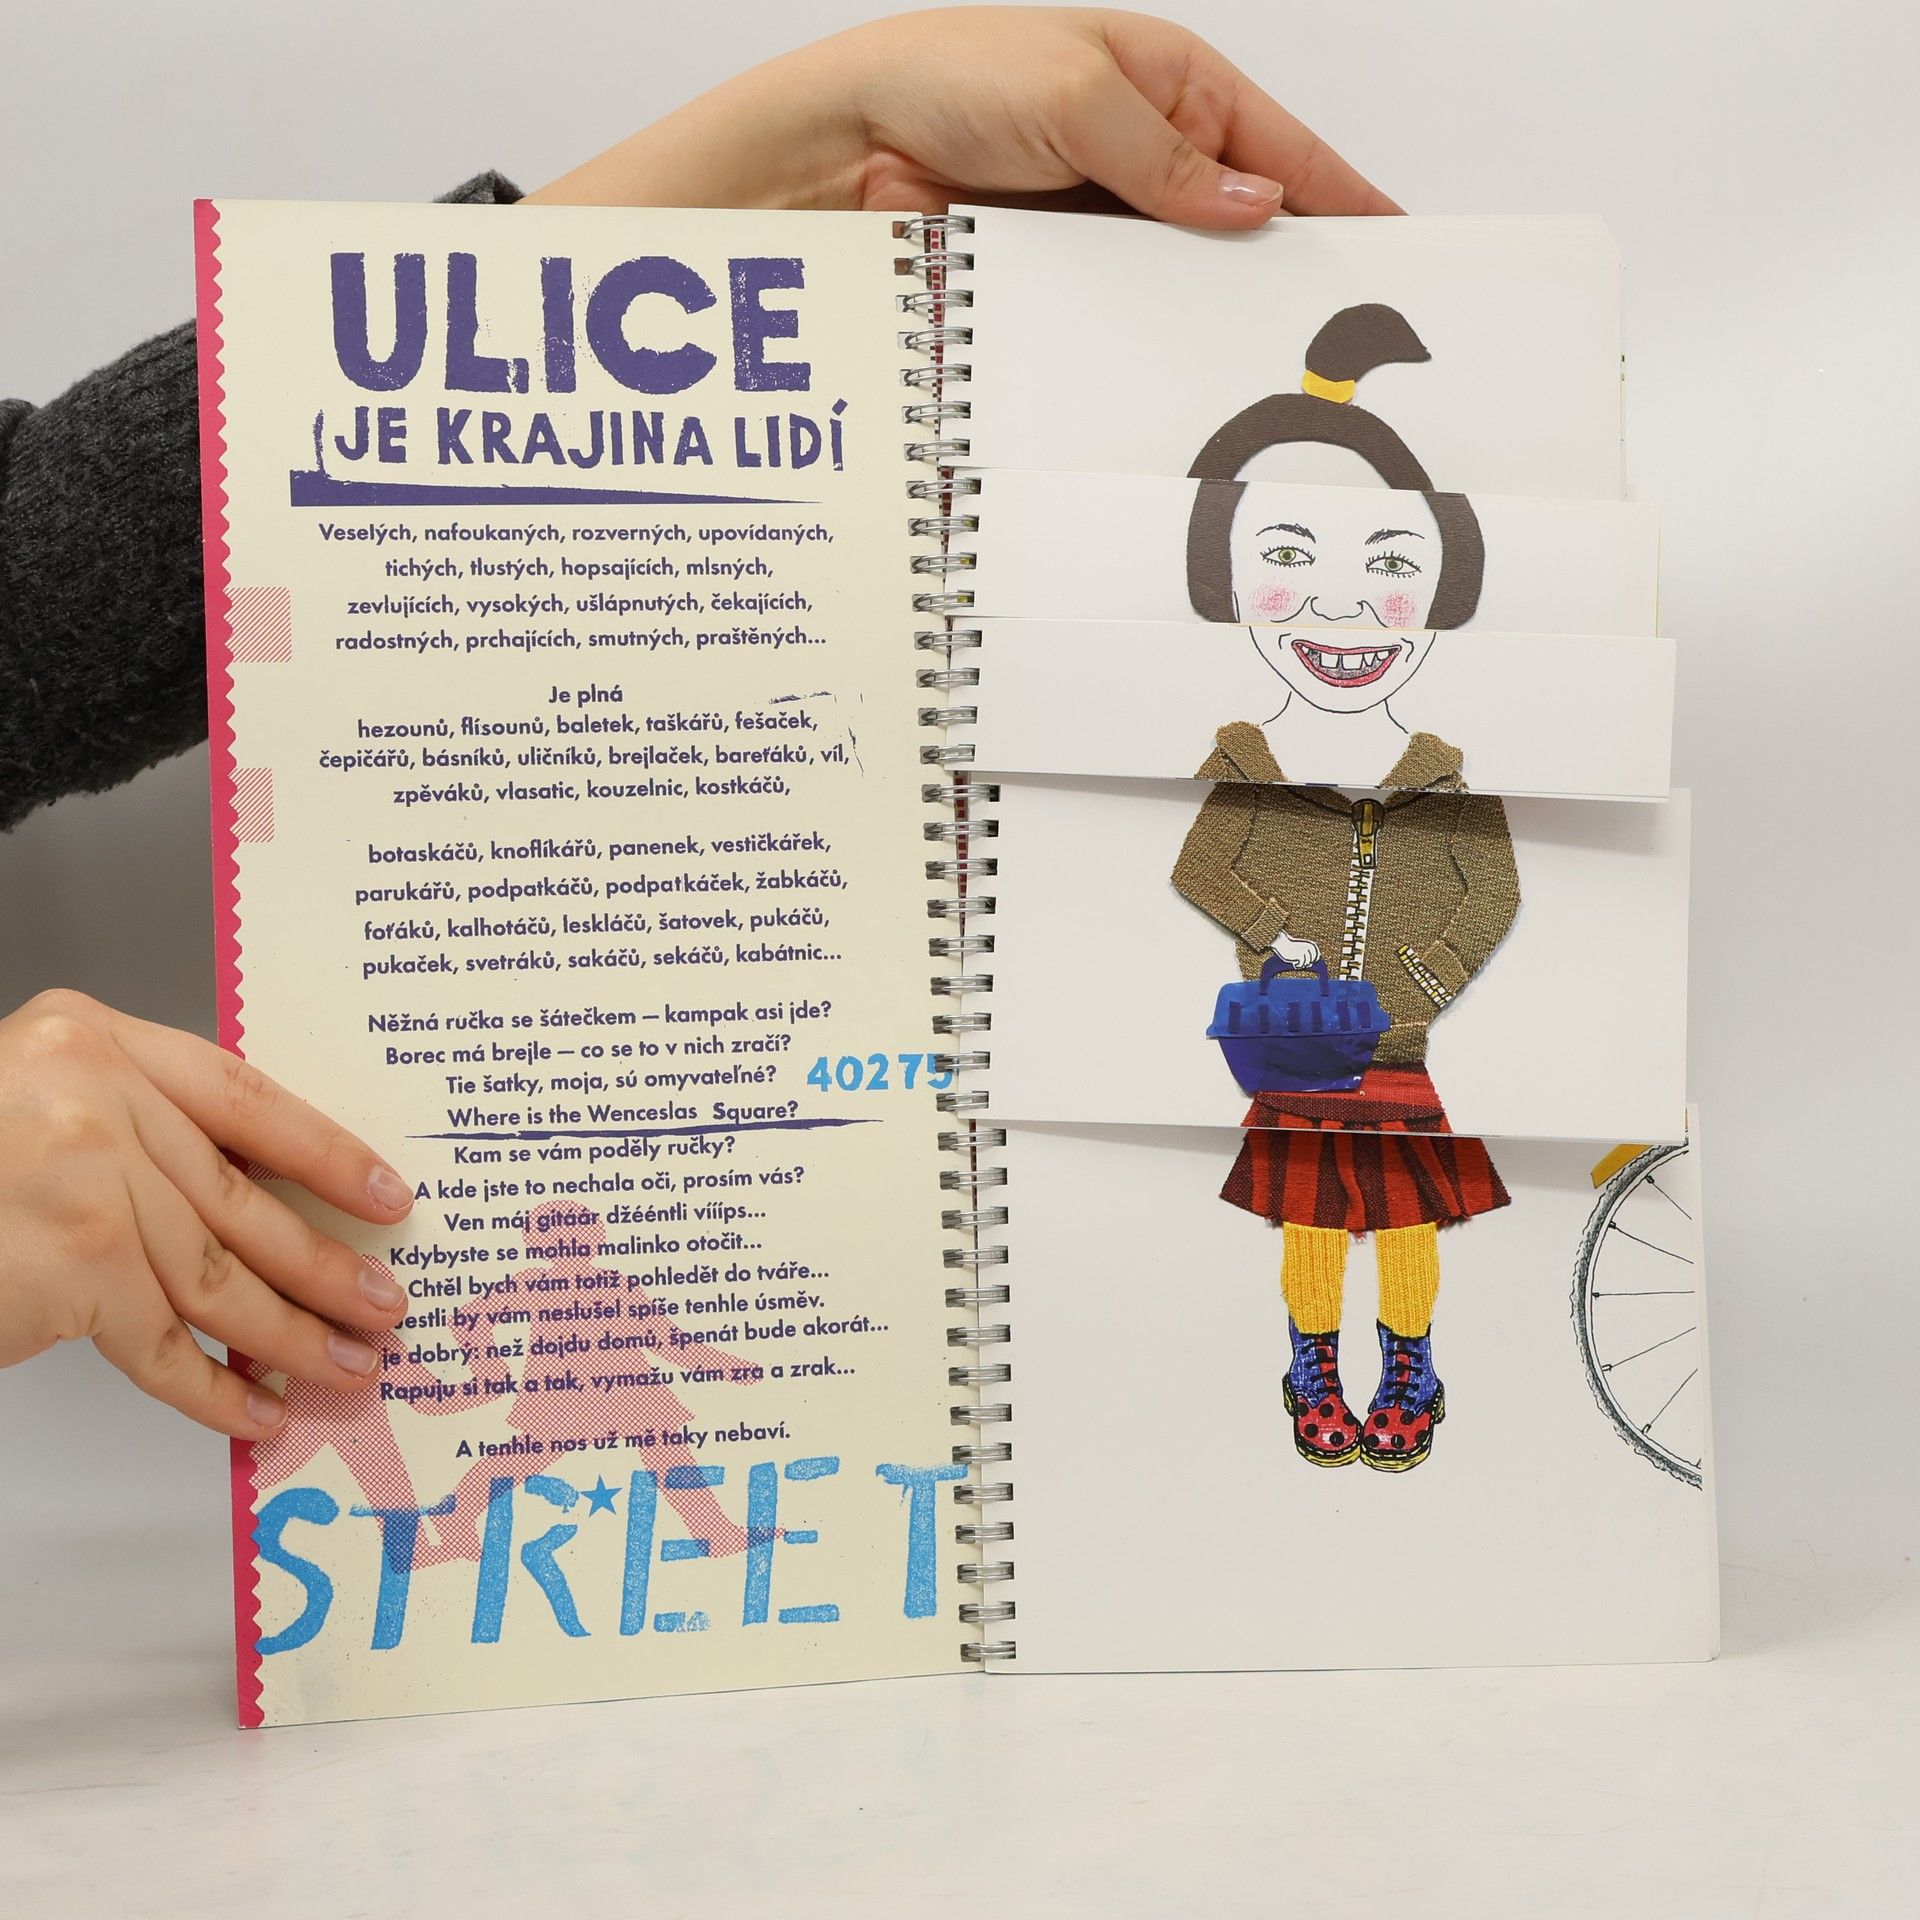 ULICE
JE KRAJINA LIDÍ
Veselých, nafoukaných, rozverných, upovídaných,
tichých, tlustých, hopsajících, mlsných,
zevlujících, vysokých, ušlápnutých, čekajících,
radostných, prchajících, smutných, praštěných...
Je plná
hezounů, flísounů, baletek, taškářů, fešaček,
čepičářů, básníků, uličníků, brejlaček, bareťáků, víl,
zpěváků, vlasatic, kouzelnic, kostkáčů,
botaskáčů, knoflíkářů, panenek, vestičkářek,
parukářů, podpatkáčů, podpatkáček, žabkáčů,
foťáků, kalhotáčů, leskláčů, šatovek, pukáčů,
pukaček, svetráků, sakáčů, sekáčů, kabátnic...
Něžná ručka se šátečkem – kampak asi jde?
Borec má brejle – co se to v nich zračí?
Tie šatky, moja, sú omyvateľné?
40275
Where is the Wenceslas Square?
Kam se vám poděly ručky?
A kde jste to nechala oči, prosím vás?
Ven máj gitáár džééntli víííps...
Kdybyste se mohla malinko otočit...
Chtěl bych vám totiž pohledět do tváře...
estli by vám neslušel spíše tenhle úsměv.
je dobrý: než dojdu domů, špenát bude akorát...
Rapuju si tak a tak, vymažu vám zra a zrak...
A tenhle nos už mě taky nebaví.
STREET